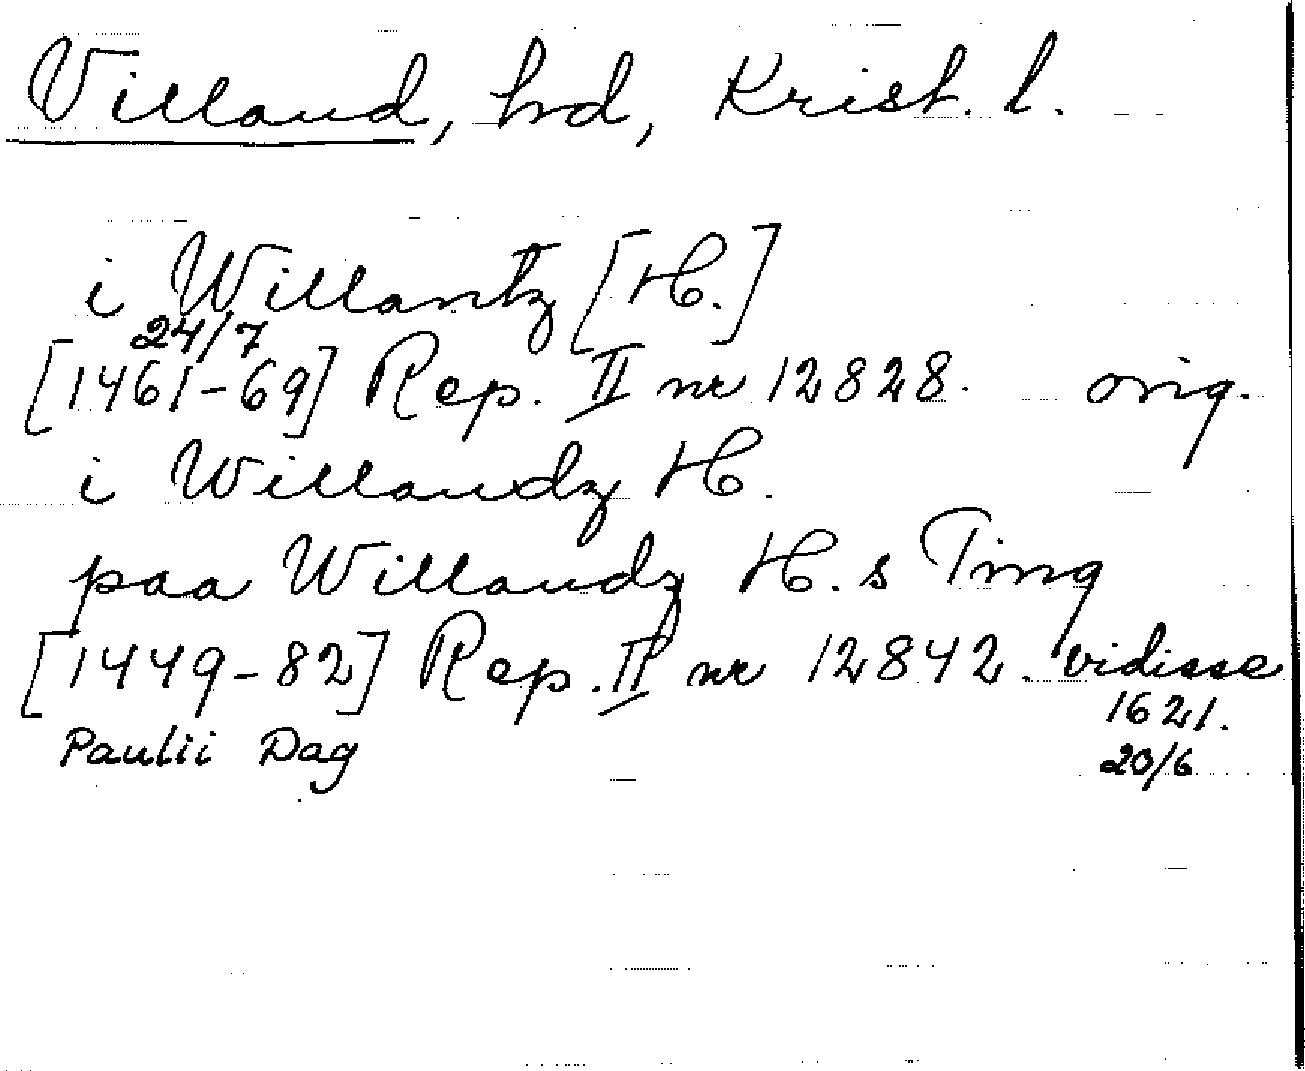 Villand, hrd, Krist. l.
i Willantz [H.]
24/7
[1461-69] Rep. II nr 12828. orig.
i Willandz H.
paa Willandz H. s Ting
[1449-82] Rep. II nr 12842. vidisse
1621.
Paulii Dag 20/6